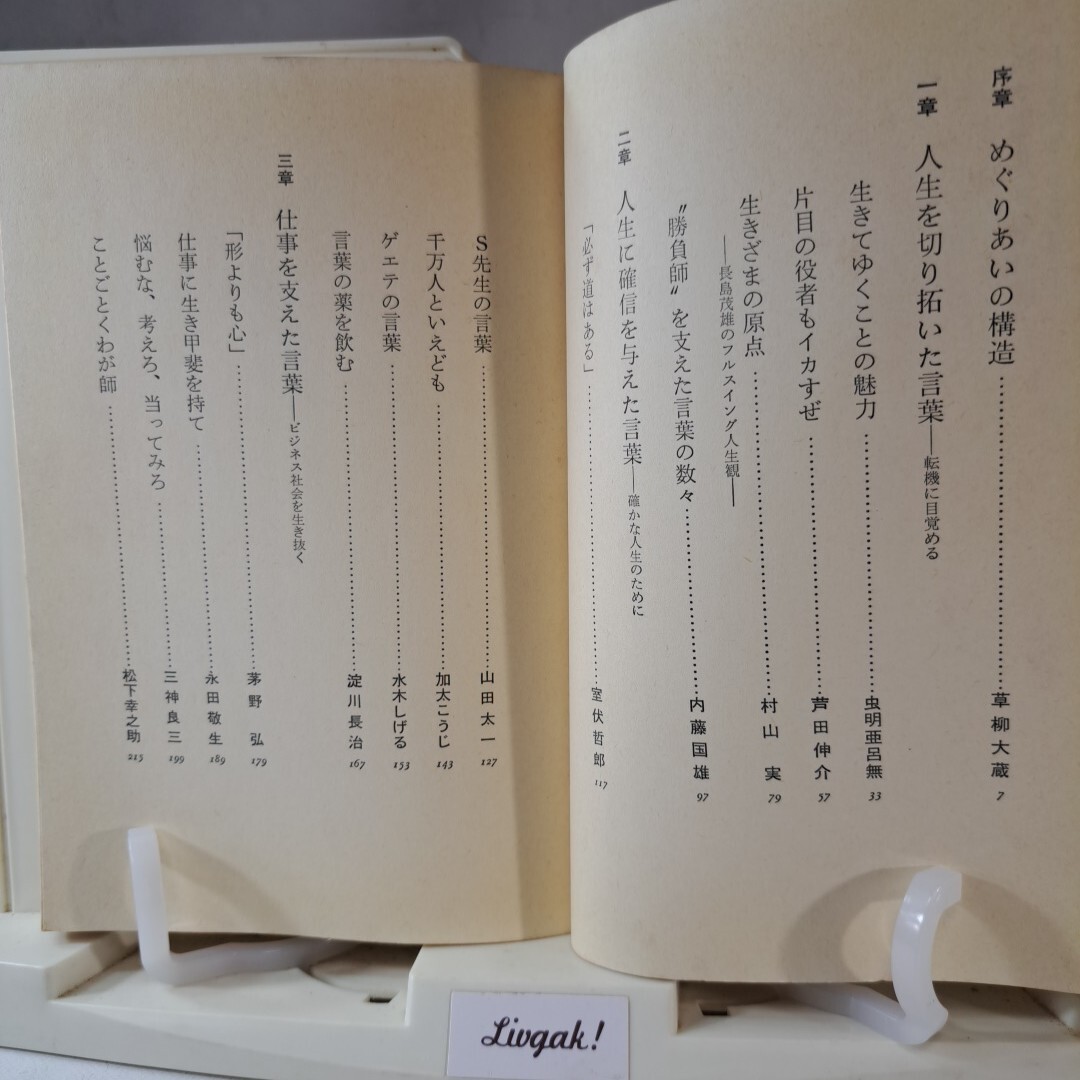 序章 めぐりあいの構造……草柳大蔵 7
一章 人生を切り拓いた言葉——転機に目覚める
生きてゆくことの魅力……虫明亜呂無 33
片目の役者もイカすぜ……芦田伸介 57
生きざまの原点……村山 実 79
——長島茂雄のフルスイング人生観——
〝勝負師〟を支えた言葉の数々……内藤国雄 97
二章 人生に確信を与えた言葉——確かな人生のために
「必ず道はある」……室伏哲郎 117
S先生の言葉……山田太一 127
千万人といえども……加太こうじ 143
ゲエテの言葉……水木しげる 153
言葉の薬を飲む……淀川長治 167
三章 仕事を支えた言葉——ビジネス社会を生き抜く
「形よりも心」……茅野 弘 179
仕事に生き甲斐を持て……永田敬生 189
悩むな、考えろ、当ってみろ……三神良三 199
ことごとくわが師……松下幸之助 215
Livgak!